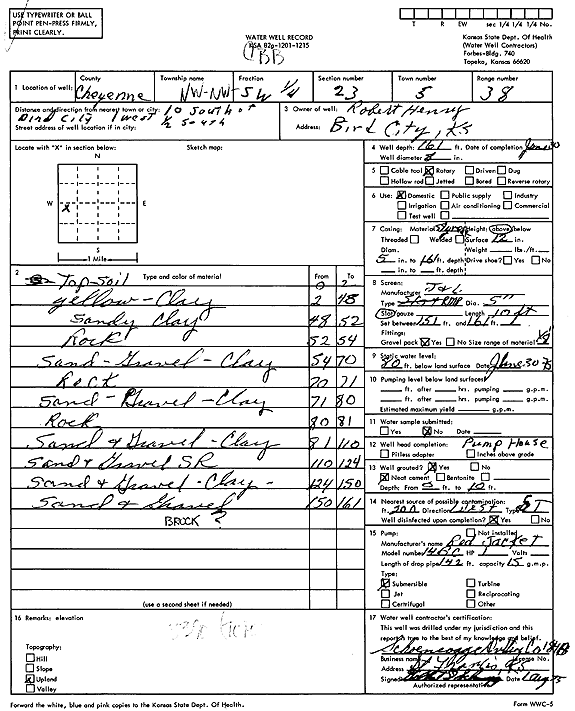 USE TYPEWRITER OR BALL
POINT PEN-PRESS FIRMLY,
PRINT CLEARLY.
WATER WELL RECORD
KSA 82a-1201-1215
BB
T R EW sec 1/4 1/4 1/4 No.
Kansas State Dept. Of Health
(Water Well Contractors)
Forbes-Bldg. 740
Topeka, Kansas 66620
1 Location of well: County Cheyenne Township name Fraction NW-NW-SW 1/4 Section number 23 Town number 5 Range number 38
Distance and direction from nearest town or city: 10 South of
Bird City 1 west 1/2 South
Street address of well location if in city:
3 Owner of well: Robert Henry
Address: Bird City, KS
Locate with "X" in section below: Sketch map:
N
W X E
S
1 Mile
4 Well depth: 161 ft. Date of completion June 30
Well diameter in.
5 Cable tool X Rotary Driven Dug
Hollow rod Jetted Bored Reverse rotary
6 Use: X Domestic Public supply Industry
Irrigation Air conditioning Commercial
Test well
7 Casing: Material Height: above/below
Threaded Welded Surface 12 in.
Diam. Weight lbs./ft.
5 in. to 161 ft. depth Drive shoe? Yes No
in. to ft. depth
2 Type and color of material From To
Top-Soil 0 2
yellow-Clay 2 48
Sandy Clay 48 52
Rock 52 54
Sand-Gravel-Clay 54 70
Rock 70 71
Sand-Gravel-Clay 71 80
Rock 80 81
Sand & Gravel-Clay 81 110
Sand & Gravel SR 110 124
Sand & Gravel-Clay- 124 150
Sand & Gravel 150 161
BROCK ?
(use a second sheet if needed)
8 Screen:
Manufacturer J&L
Type Dia. 5"
Slot/gauze Length 10 ft
Set between 151 ft. and 161 ft.
Fittings:
Gravel pack X Yes No Size range of material
9 Static water level:
ft. below land surface Date June 30 75
10 Pumping level below land surface:
ft. after hrs. pumping g.p.m.
ft. after hrs. pumping g.p.m.
Estimated maximum yield g.p.m.
11 Water sample submitted:
Yes X No Date
12 Well head completion: Pump House
Pitless adapter Inches above grade
13 Well grouted? X Yes No
X Neat cement Bentonite
Depth: From ft. to 10 ft.
14 Nearest source of possible contamination:
ft. 200 Direction West Type ST
Well disinfected upon completion? X Yes No
15 Pump: Not installed
Manufacturer's name Red Jacket
Model number HP 1 Volts
Length of drop pipe 142 ft. capacity 15 g.m.p.
Type:
X Submersible Turbine
Jet Reciprocating
Certrifugal Other
16 Remarks: elevation
Topography:
Hill
Slope
X Upland
Valley
17 Water well contractor's certification:
This well was drilled under my jurisdiction and this
report is true to the best of my knowledge and belief.
Business name License No.
Address St Francis, KS
Signed Date
Authorized representative
Forward the white, blue and pink copies to the Kansas State Dept. Of Health.
Form WWC-5